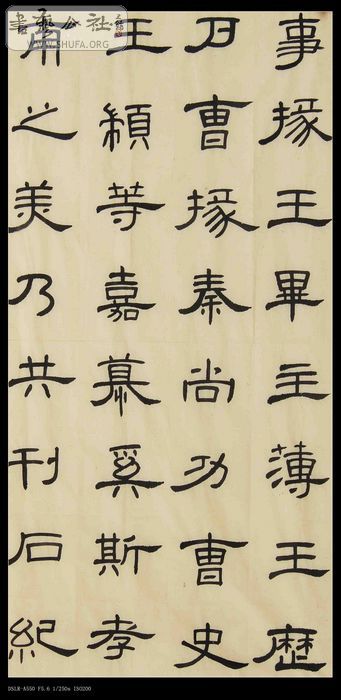 書藝公社
WWW.SHUFA.ORG
事掾王畢主薄王歷
戶曹掾秦尚功曹史
王顓等嘉慕奚斯考
甫之美乃共刊石紀
DSLR-A550 F5.6 1/250s ISO200